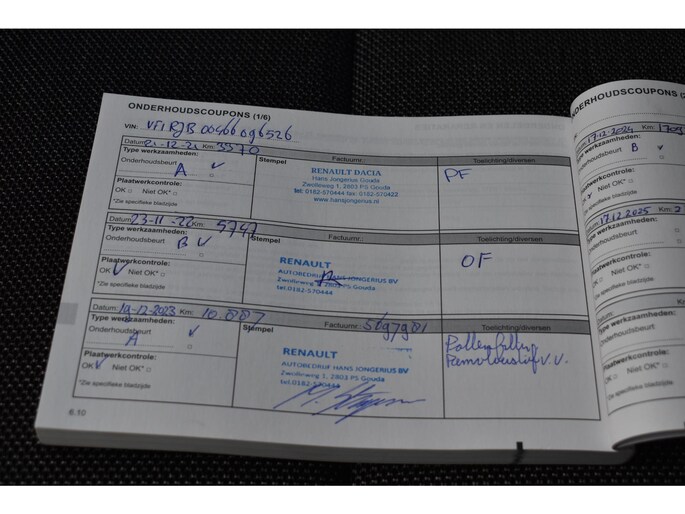 ONDERHOUDSCOUPONS (1/6)
VIN: VF1RJB00466096526
Datum: 21-12-21 Km: 3370
Type werkzaamheden: Stempel Factuurnr.: Toelichting/diversen
Onderhoudsbeurt
A
RENAULT DACIA
Hans Jongerius Gouda
Zwolleweg 1, 2803 PS Gouda
tel: 0182-570444 fax: 0182-570422
www.hansjongerius.nl
PF
Plaatwerkcontrole:
OK Niet OK*
*Zie specifieke bladzijde
Datum: 23-11-22 Km: 5747
Type werkzaamheden: Stempel Factuurnr.: Toelichting/diversen
Onderhoudsbeurt
B
RENAULT
AUTOBEDRIJF HANS JONGERIUS BV
2803 PS Gouda
tel.0182-570444
OF
Plaatwerkcontrole:
OK Niet OK*
*Zie specifieke bladzijde
Datum: 19-12-2023 Km: 10.887
Type werkzaamheden: Stempel Factuurnr.: Toelichting/diversen
Onderhoudsbeurt
A
RENAULT
AUTOBEDRIJF HANS JONGERIUS BV
Zwolleweg 1, 2803 PS Gouda
tel.0182-570444
Pollenfilter
Remvloeistof V.V.
Plaatwerkcontrole:
OK Niet OK*
*Zie specifieke bladzijde
6.10
ONDERHOUDSCOUPONS (2
17-12-2024 Km:
Type werkzaamheden:
Onderhoudsbeurt
B
Plaatwerkcontrole:
OK Niet OK*
*Zie specifieke bladzijde
17.12.2025 Km:
Type werkzaamheden:
Onderhoudsbeurt
A
Plaatwerkcontrole:
OK Niet OK*
*Zie specifieke bladzijde